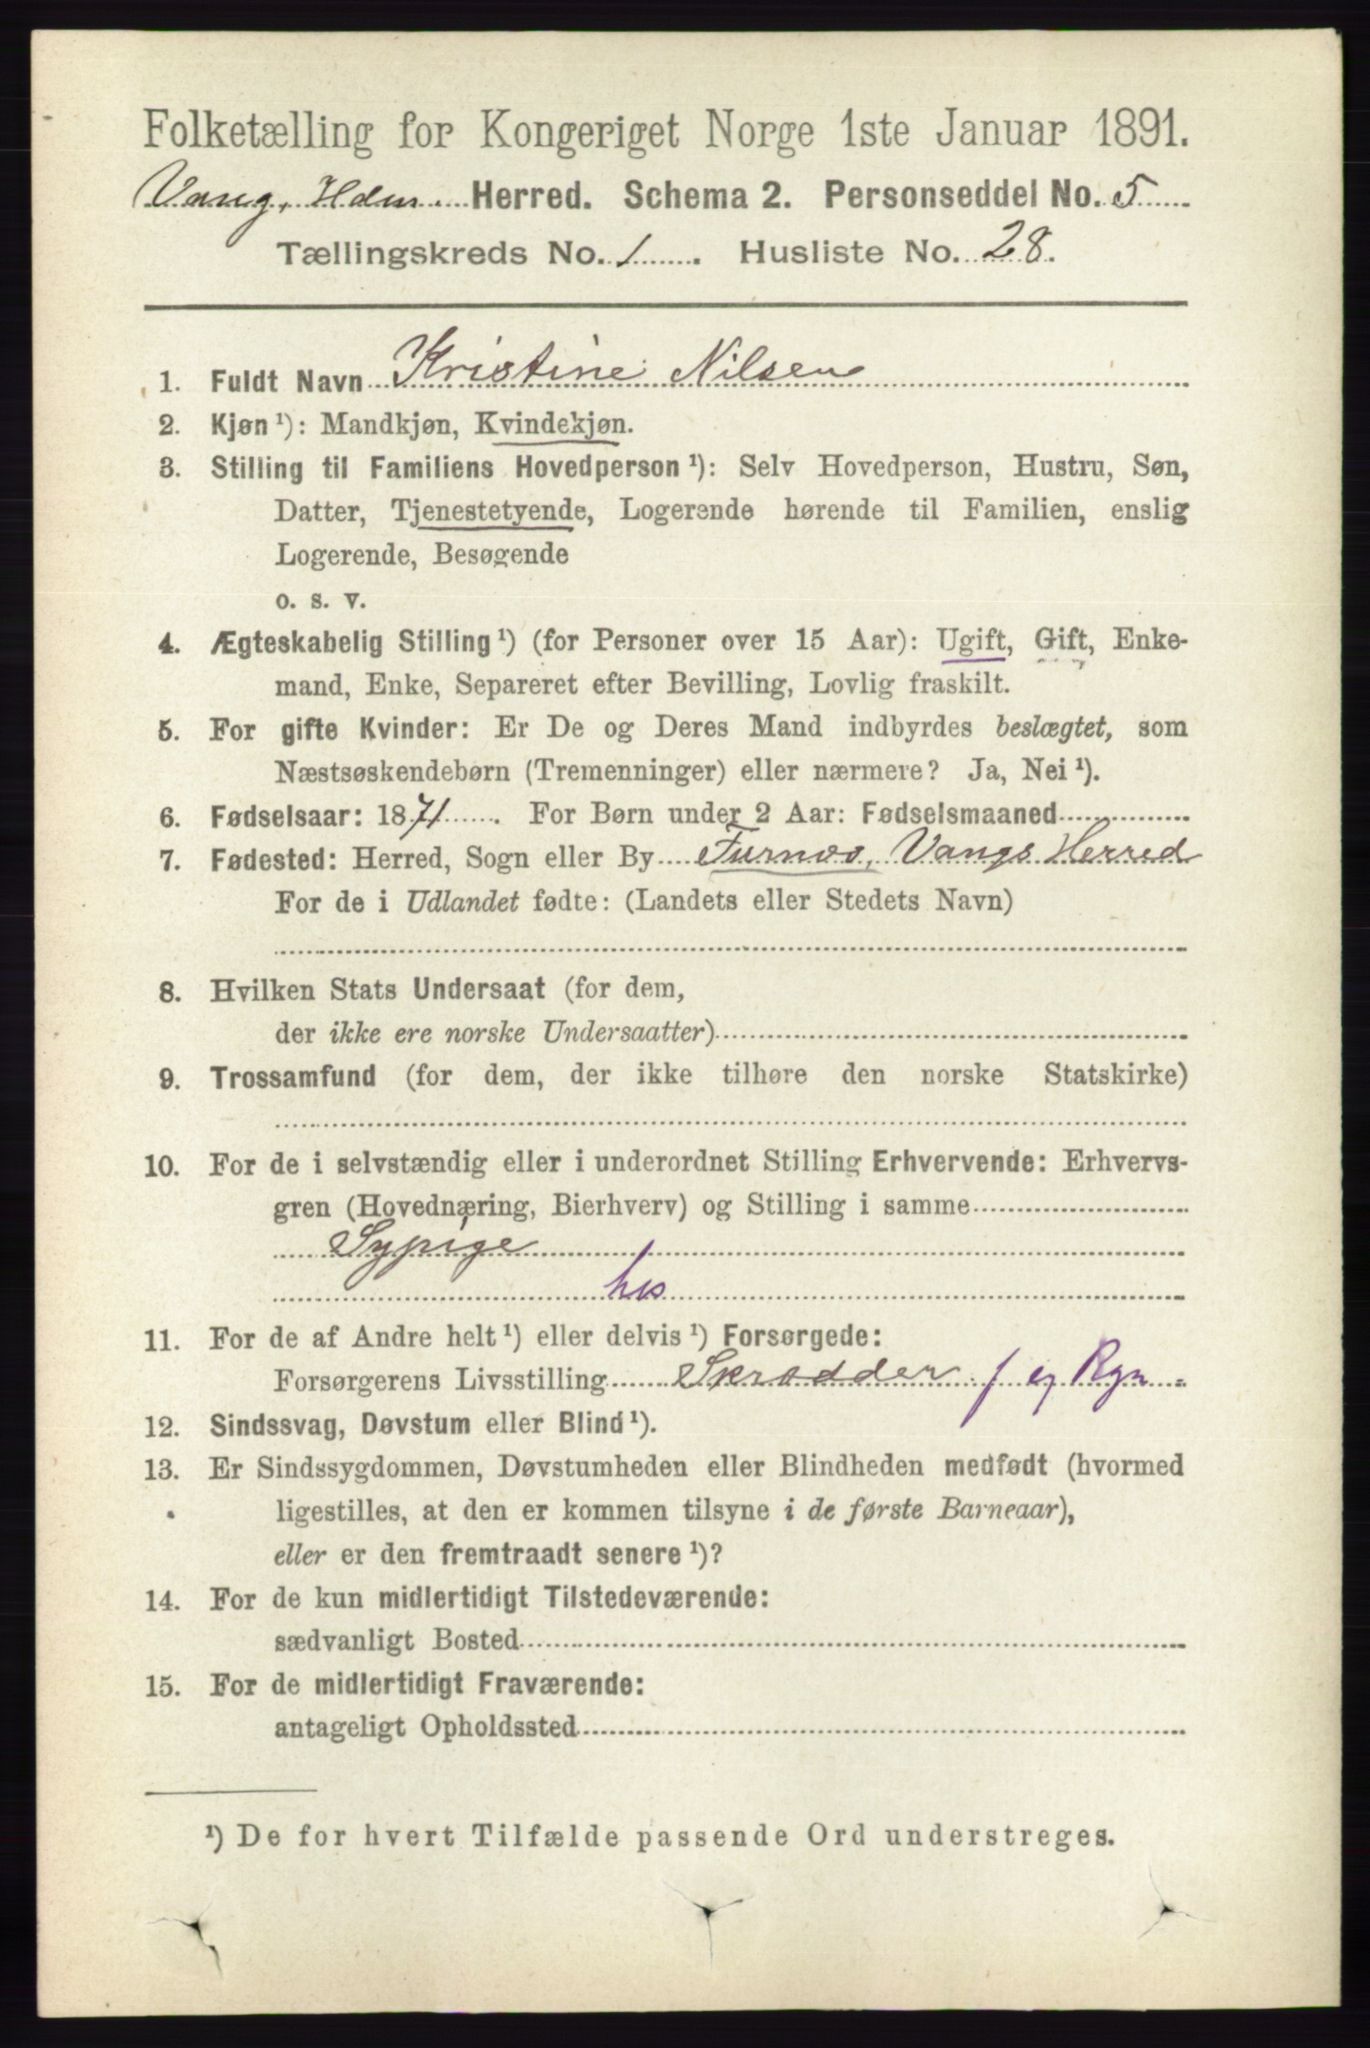 Folketælling for Kongeriget Norge 1ste Januar 1891.
Vang, Hdm. Herred. Schema 2. Personseddel No. 5
Tællingskreds No. 1. Husliste No. 28.
1. Fuldt Navn Kristine Nilsen
2. Kjøn ¹): Mandkjøn, Kvindekjøn.
3. Stilling til Familiens Hovedperson ¹): Selv Hovedperson, Hustru, Søn,
Datter, Tjenestetyende, Logerende hørende til Familien, enslig
Logerende, Besøgende
o. s. v.
4. Ægteskabelig Stilling ¹) (for Personer over 15 Aar): Ugift, Gift, Enke-
mand, Enke, Separeret efter Bevilling, Lovlig fraskilt.
5. For gifte Kvinder: Er De og Deres Mand indbyrdes beslægtet, som
Næstsøskendebørn (Tremenninger) eller nærmere? Ja, Nei ¹).
6. Fødselsaar: 1871. For Børn under 2 Aar: Fødselsmaaned
7. Fødested: Herred, Sogn eller By Furnæs, Vangs Herred
For de i Udlandet fødte: (Landets eller Stedets Navn)
8. Hvilken Stats Undersaat (for dem,
der ikke ere norske Undersaatter)
9. Trossamfund (for dem, der ikke tilhøre den norske Statskirke)
10. For de i selvstændig eller i underordnet Stilling Erhvervende: Erhvervs-
gren (Hovednæring, Bierhverv) og Stilling i samme
Sypige
hos
11. For de af Andre helt ¹) eller delvis ¹) Forsørgede:
Forsørgerens Livsstilling Skrædder f eg Rgn
12. Sindssvag, Døvstum eller Blind ¹).
13. Er Sindssygdommen, Døvstumheden eller Blindheden medfødt (hvormed
ligestilles, at den er kommen tilsyne i de første Barneaar),
eller er den fremtraadt senere ¹)?
14. For de kun midlertidigt Tilstedeværende:
sædvanligt Bosted
15. For de midlertidigt Fraværende:
antageligt Opholdssted
¹) De for hvert Tilfælde passende Ord understreges.